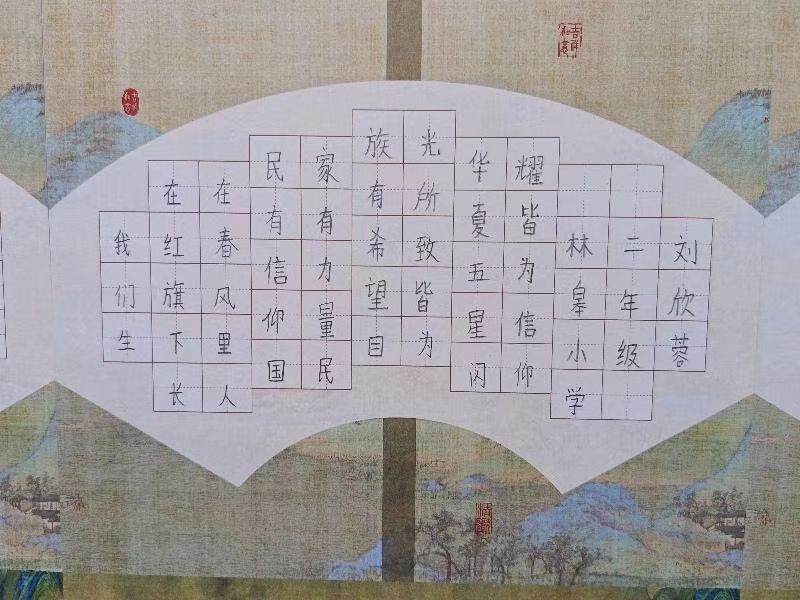 我们生
在红旗下长
在春风里人
民有信仰国
家有力量民
族有希望目
光所致皆为
华夏五星闪
耀皆为信仰
林皋小学
二年级
刘欣蓉